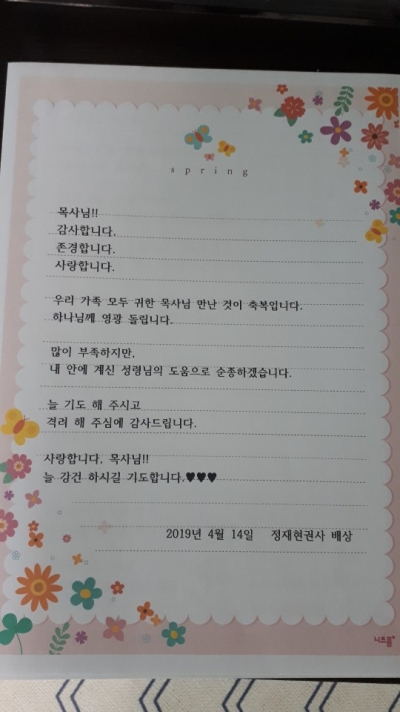 spring
목사님!!
감사합니다.
존경합니다.
사랑합니다.
우리 가족 모두 귀한 목사님 만난 것이 축복입니다.
하나님께 영광 돌립니다.
많이 부족하지만,
내 안에 계신 성령님의 도움으로 순종하겠습니다.
늘 기도 해 주시고
격려 해 주심에 감사드립니다.
사랑합니다, 목사님!!
늘 강건 하시길 기도합니다.♥♥♥
2019년 4월 14일 정재현권사 배상
니즈폼